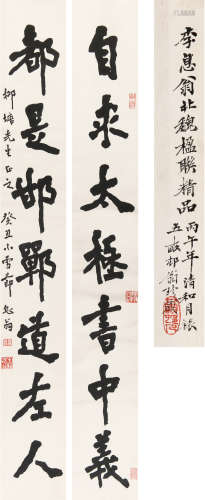 自求太極書中義
都是邯鄲道左人
柳塘先生正之 癸丑小雪節 息翁
李息翁北魏楹聯精品
丙午年清和月
五畝邨翁